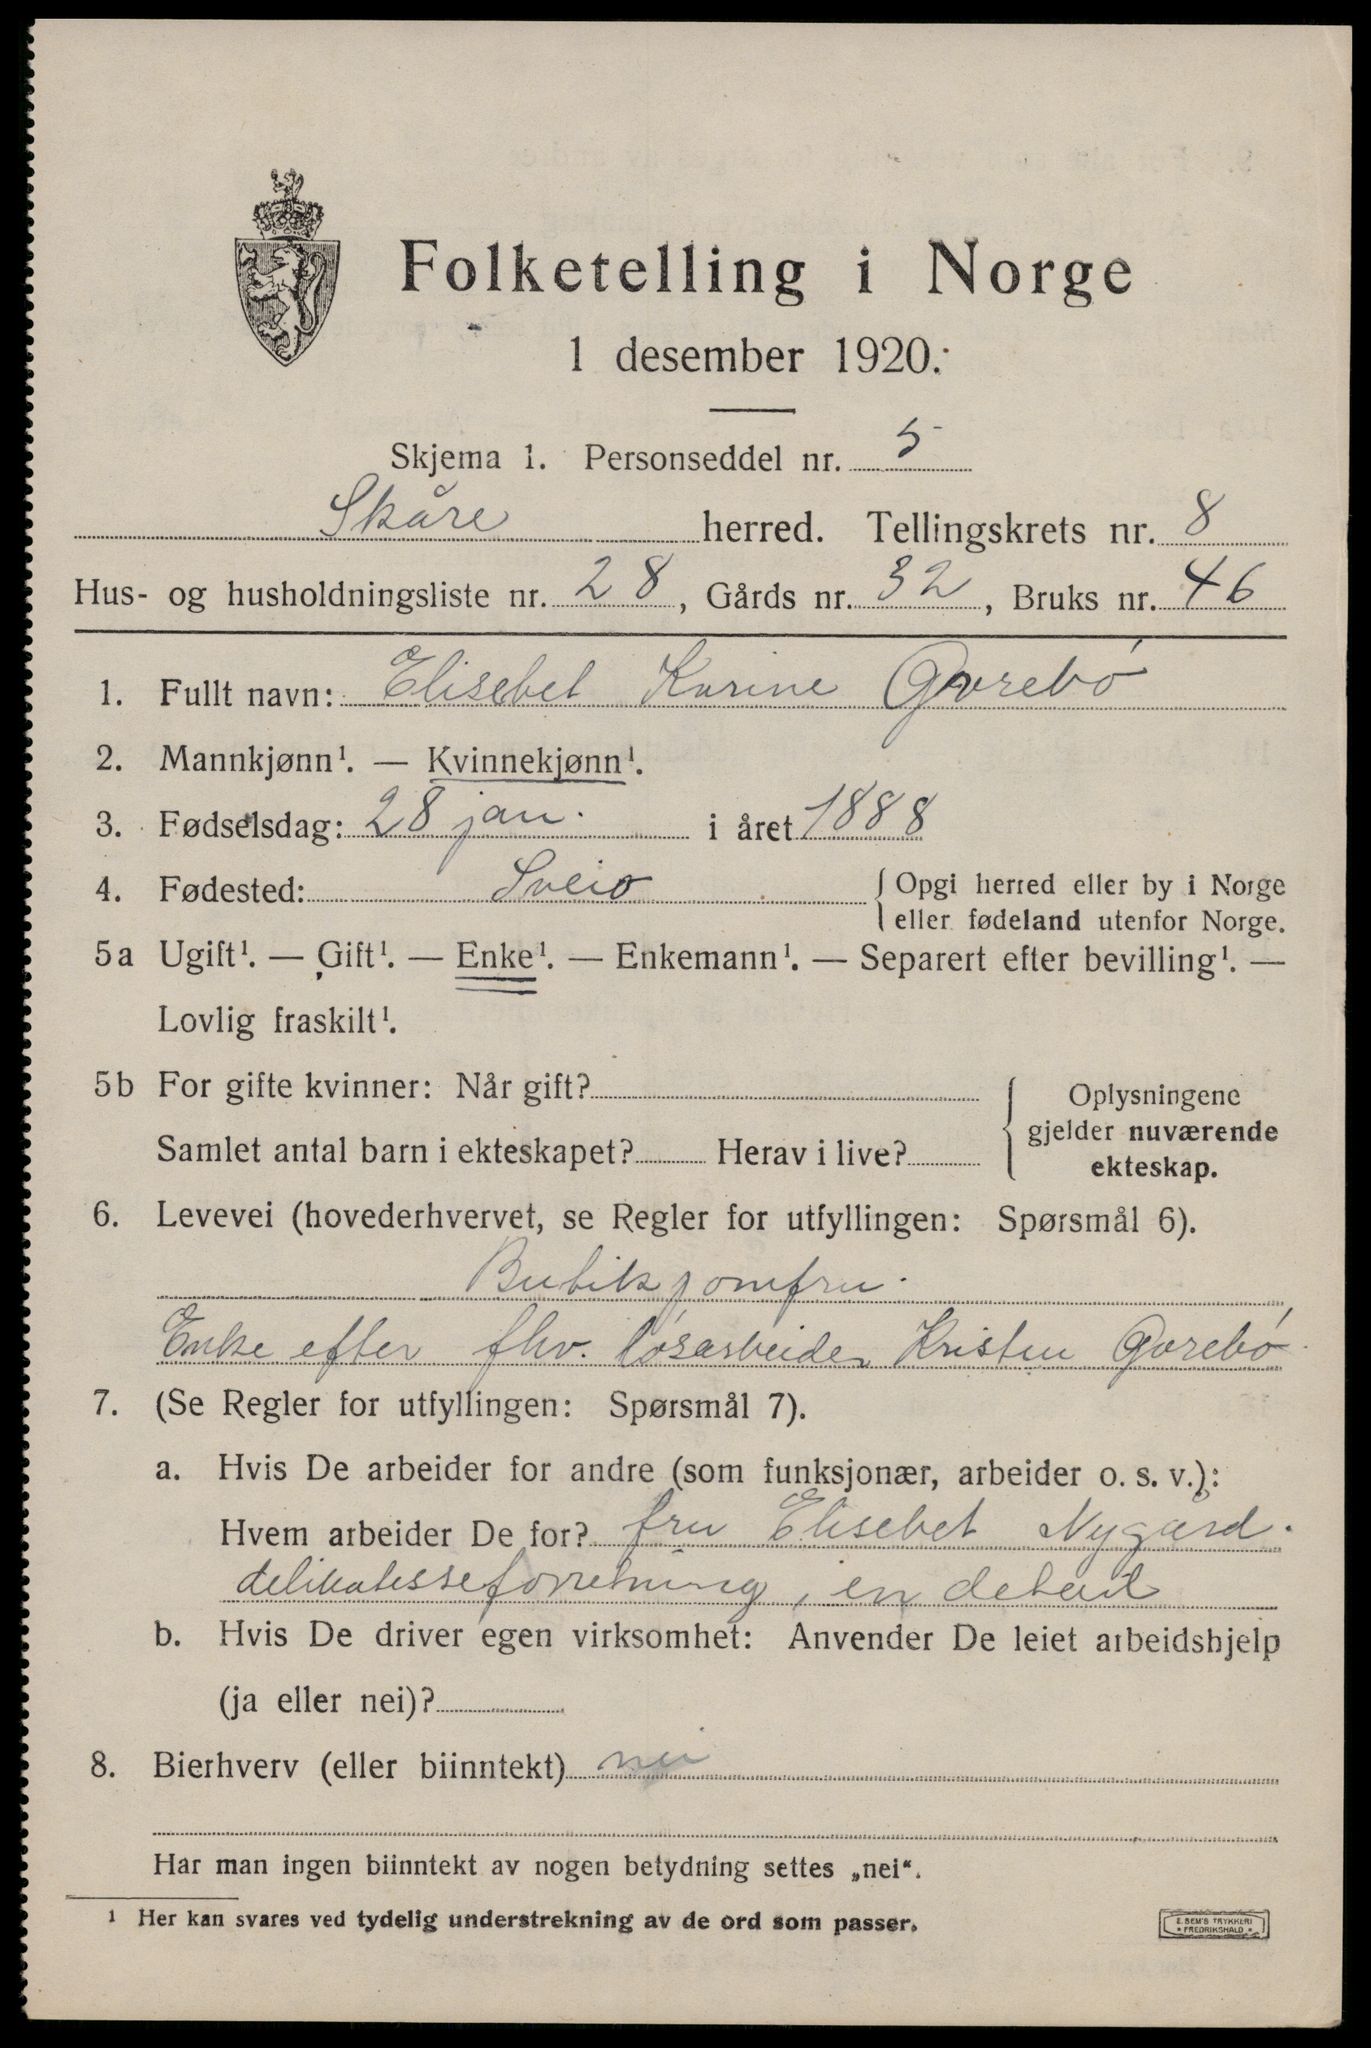 Folketelling i Norge
1 desember 1920.
Skjema 1. Personseddel nr. 5
Skåre herred. Tellingskrets nr. 8
Hus- og husholdningsliste nr. 28, Gårds nr. 32, Bruks nr. 46
1. Fullt navn: Elisebet Karine Gvrebö
2. Mannkjønn¹. — Kvinnekjønn¹.
3. Fødselsdag: 28 jan. i året 1888
4. Fødested: Sveio {Opgi herred eller by i Norge
eller fødeland utenfor Norge.
5a Ugift¹. — Gift¹. — Enke¹. — Enkemann¹. — Separert efter bevilling¹. —
Lovlig fraskilt¹.
5b For gifte kvinner: Når gift?
Samlet antal barn i ekteskapet? Herav i live?
{Oplysningene
gjelder nuværende
ekteskap.
6. Levevei (hovederhvervet, se Regler for utfyllingen: Spørsmål 6).
Butikjomfru.
Enke efter fhv. løsarbeider Kristen Gvrebö
7. (Se Regler for utfyllingen: Spørsmål 7).
a. Hvis De arbeider for andre (som funksjonær, arbeider o. s. v.):
Hvem arbeider De for? fru Elisebet Nygård.
delikatesseforretning, en detail
b. Hvis De driver egen virksomhet: Anvender De leiet arbeidshjelp
(ja eller nei)?
8. Bierhverv (eller biinntekt) nei
Har man ingen biinntekt av nogen betydning settes „nei“.
¹ Her kan svares ved tydelig understrekning av de ord som passer.
E. SEM'S TRYKKERI
* FREDRIKSHALD *